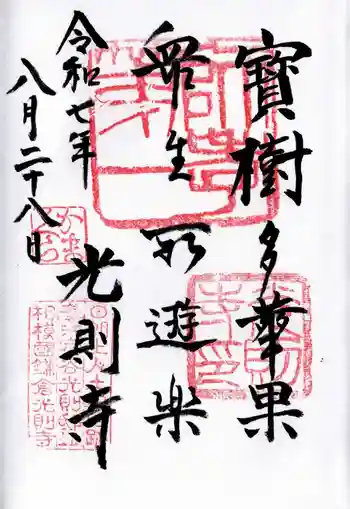 寶樹多華果
衆生所遊樂
令和七年
八月二十八日
光則寺
相模國鎌倉光則寺